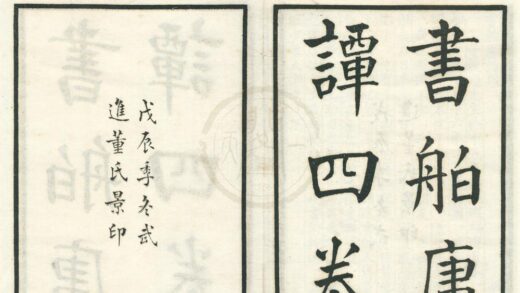 書舶庸
譚四卷
戊辰季冬武
進董氏景印